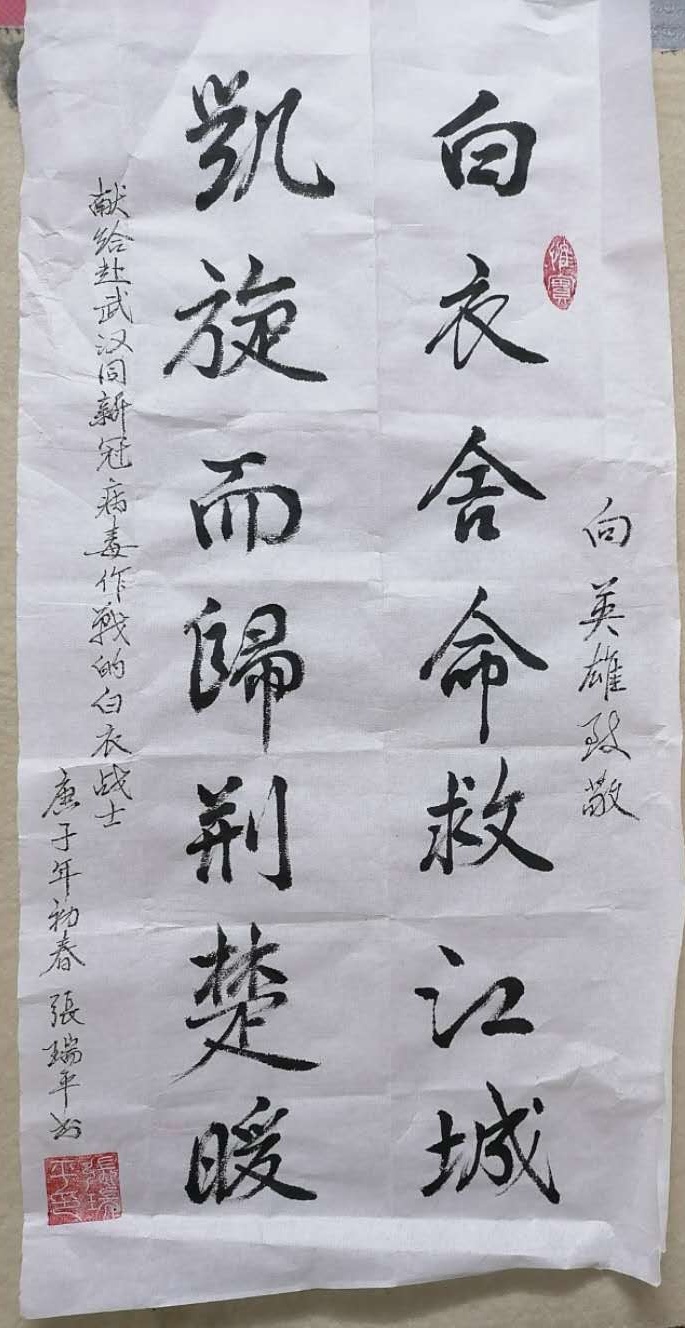 向英雄致敬
白衣舍命救江城
凯旋而歸荆楚暖
献给赴武汉同新冠病毒作戰的白衣战士
庚子年初春 張瑞平书
張瑞平印